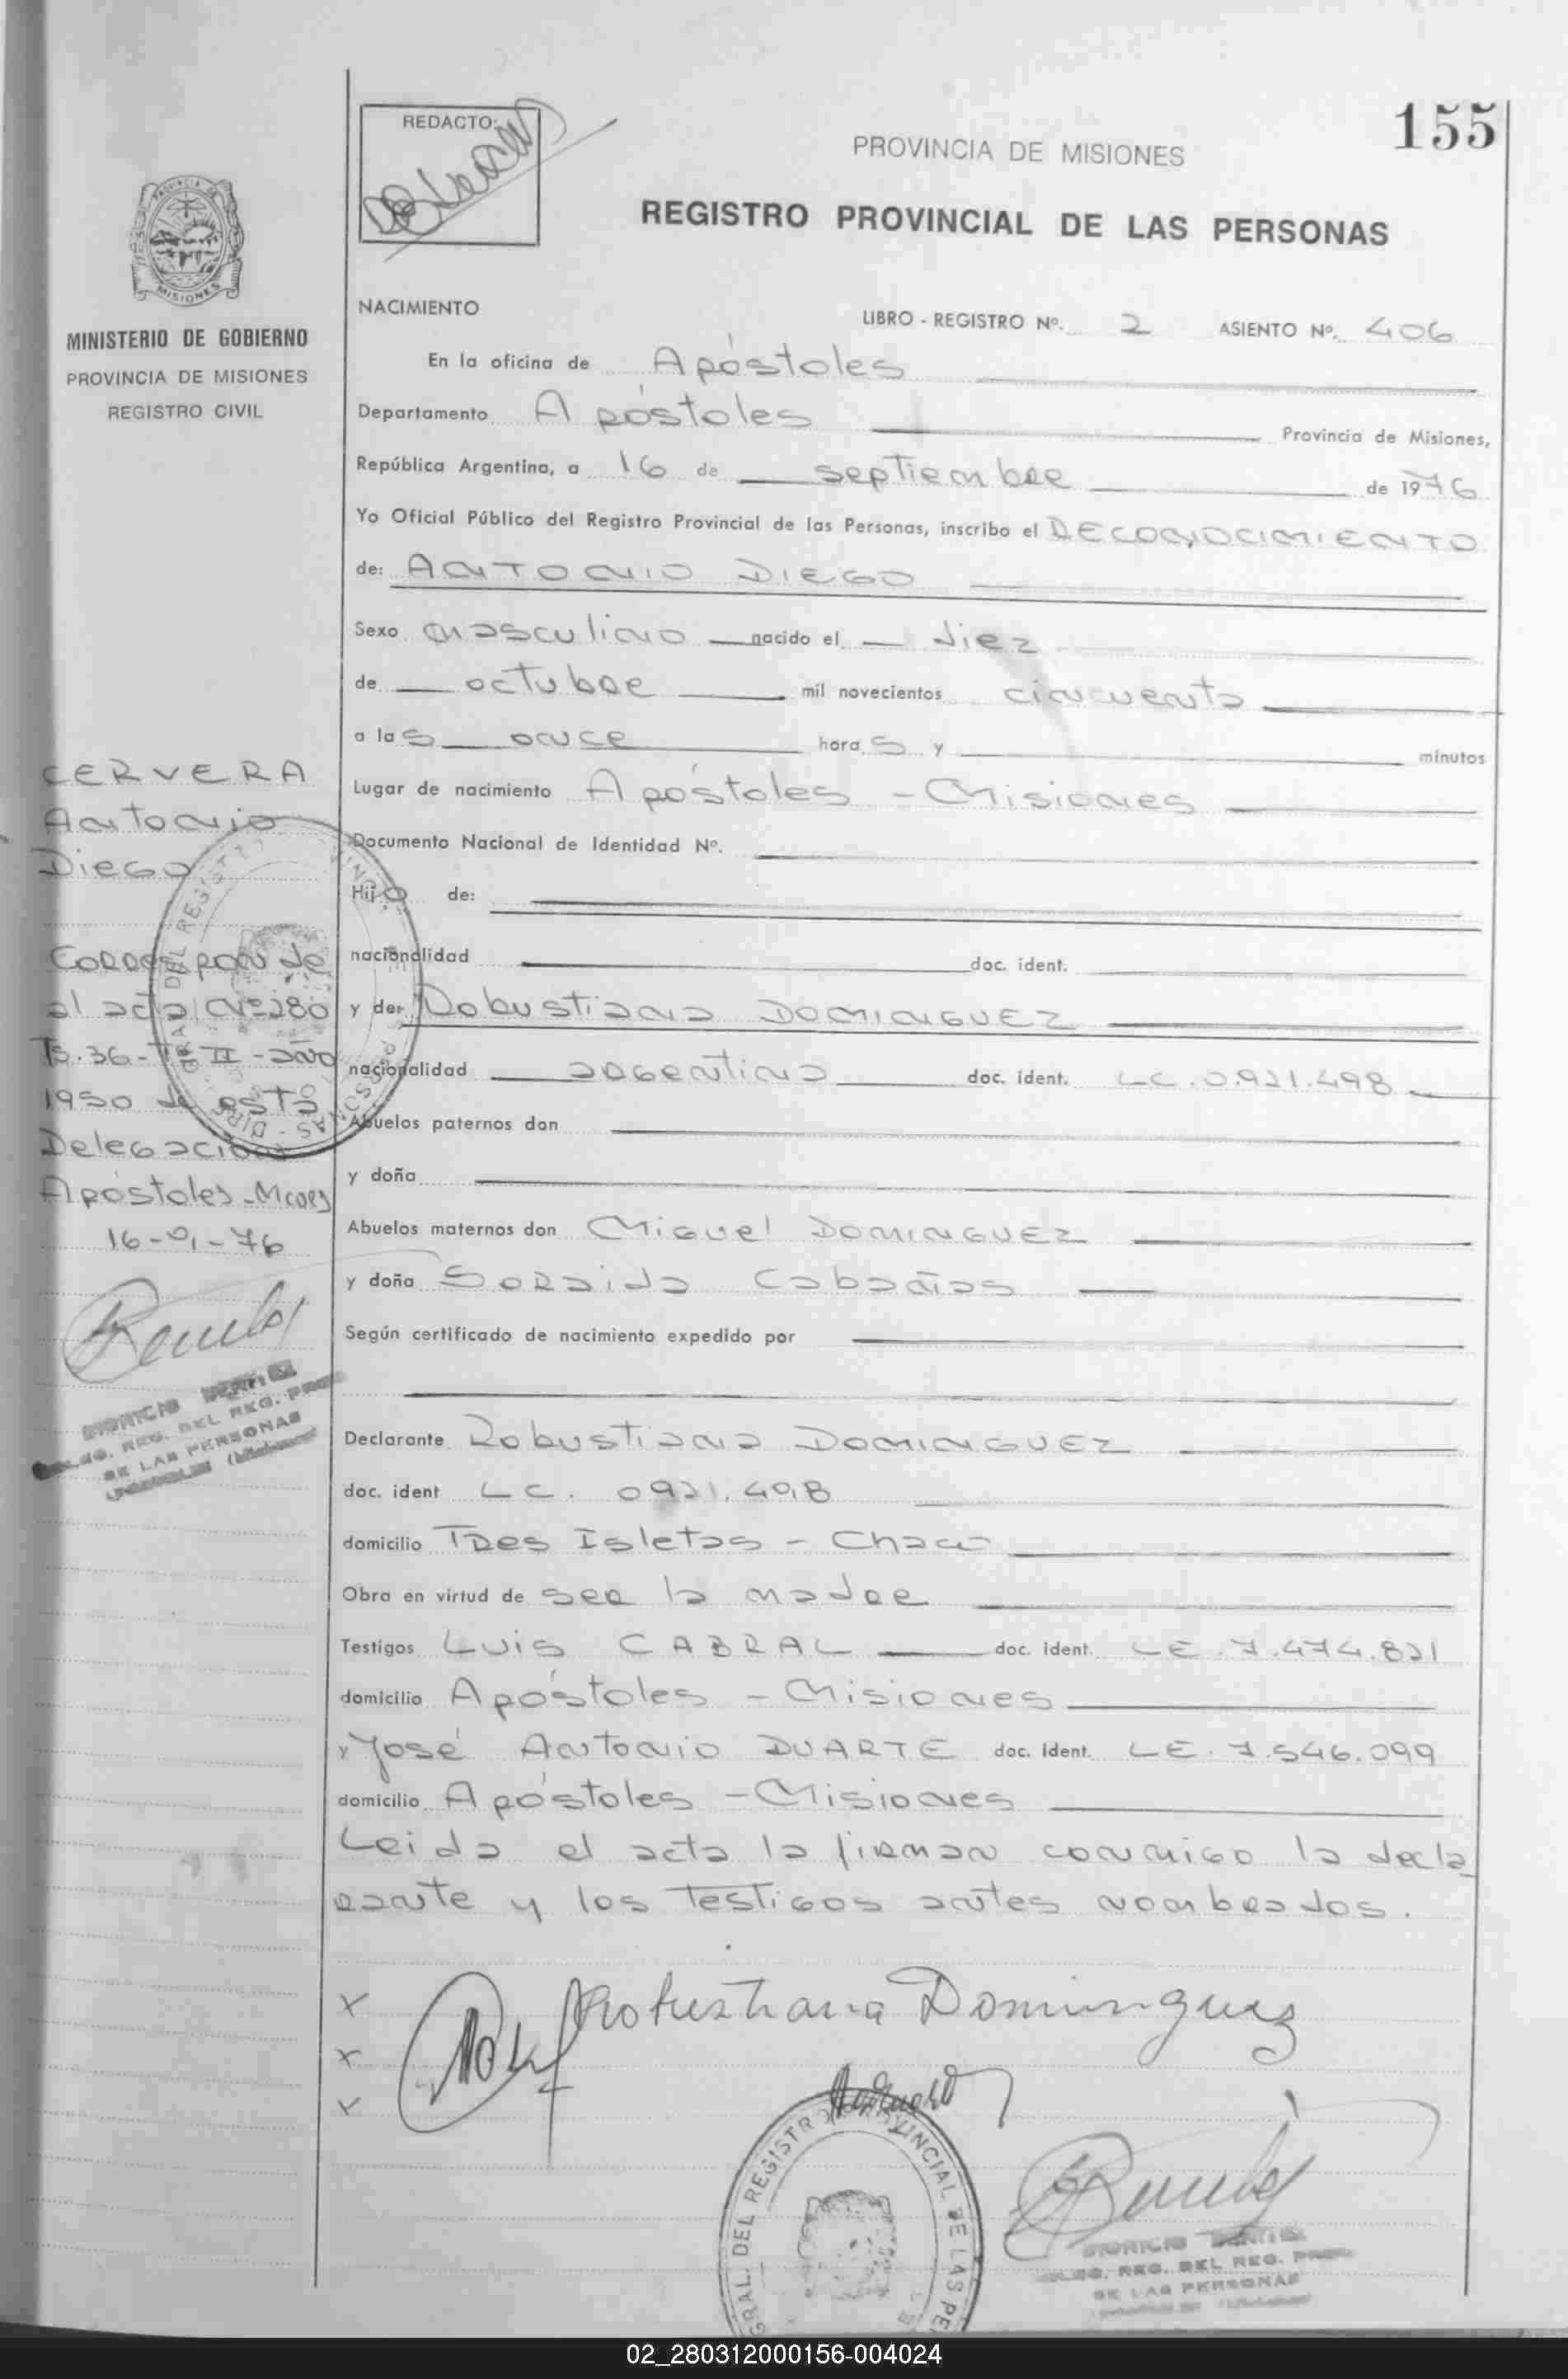 155
REDACTO:
PROVINCIA DE MISIONES
REGISTRO PROVINCIAL DE LAS PERSONAS
MISIONES
MINISTERIO DE GOBIERNO
PROVINCIA DE MISIONES
REGISTRO CIVIL
NACIMIENTO
LIBRO - REGISTRO Nº. 2 ASIENTO Nº. 406
En la oficina de Apóstoles
Departamento Apóstoles Provincia de Misiones,
República Argentina, a 16 de septiembre de 1976
Yo Oficial Público del Registro Provincial de las Personas, inscribo el RECONOCIMIENTO
de: ANTONIO DIEGO
Sexo masculino nacido el diez
de octubre mil novecientos cincuenta
a las once horas y minutos
Lugar de nacimiento Apóstoles - Misiones
Documento Nacional de Identidad Nº.
Hijo de:
nacionalidad doc. ident.
y de: Robustiana DOMINGUEZ
nacionalidad argentina doc. ident. LC. 0.921.498
Abuelos paternos don
y doña
Abuelos maternos don Miguel DOMINGUEZ
y doña Soraida Cabañas
Según certificado de nacimiento expedido por
Declarante Robustiana DOMINGUEZ
doc. ident LC. 0921.498
domicilio Tres Isletas - Chaco
Obra en virtud de ser la madre
Testigos Luis CABRAL doc. ident. LE. 7.474.821
domicilio Apóstoles - Misiones
y José Antonio DUARTE doc. Ident. LE. 7.546.099
domicilio Apóstoles - Misiones
Leida el acta la firman conmigo la decla
rante y los testigos antes nombrados.
CERVERA
Antonio
Diego
Corresponde
al acta Nº 280
Tº II - año
1950 de esta
Delegación
Apóstoles - Mnes
16-9-76
REG. DEL REG. PROV.
DE LAS PERSONAS
Robustiana Dominguez
GRAL. DEL REGISTRO PROVINCIAL DE LAS PE
REG. DEL REG. PROV.
DE LAS PERSONAS
02_280312000156-004024